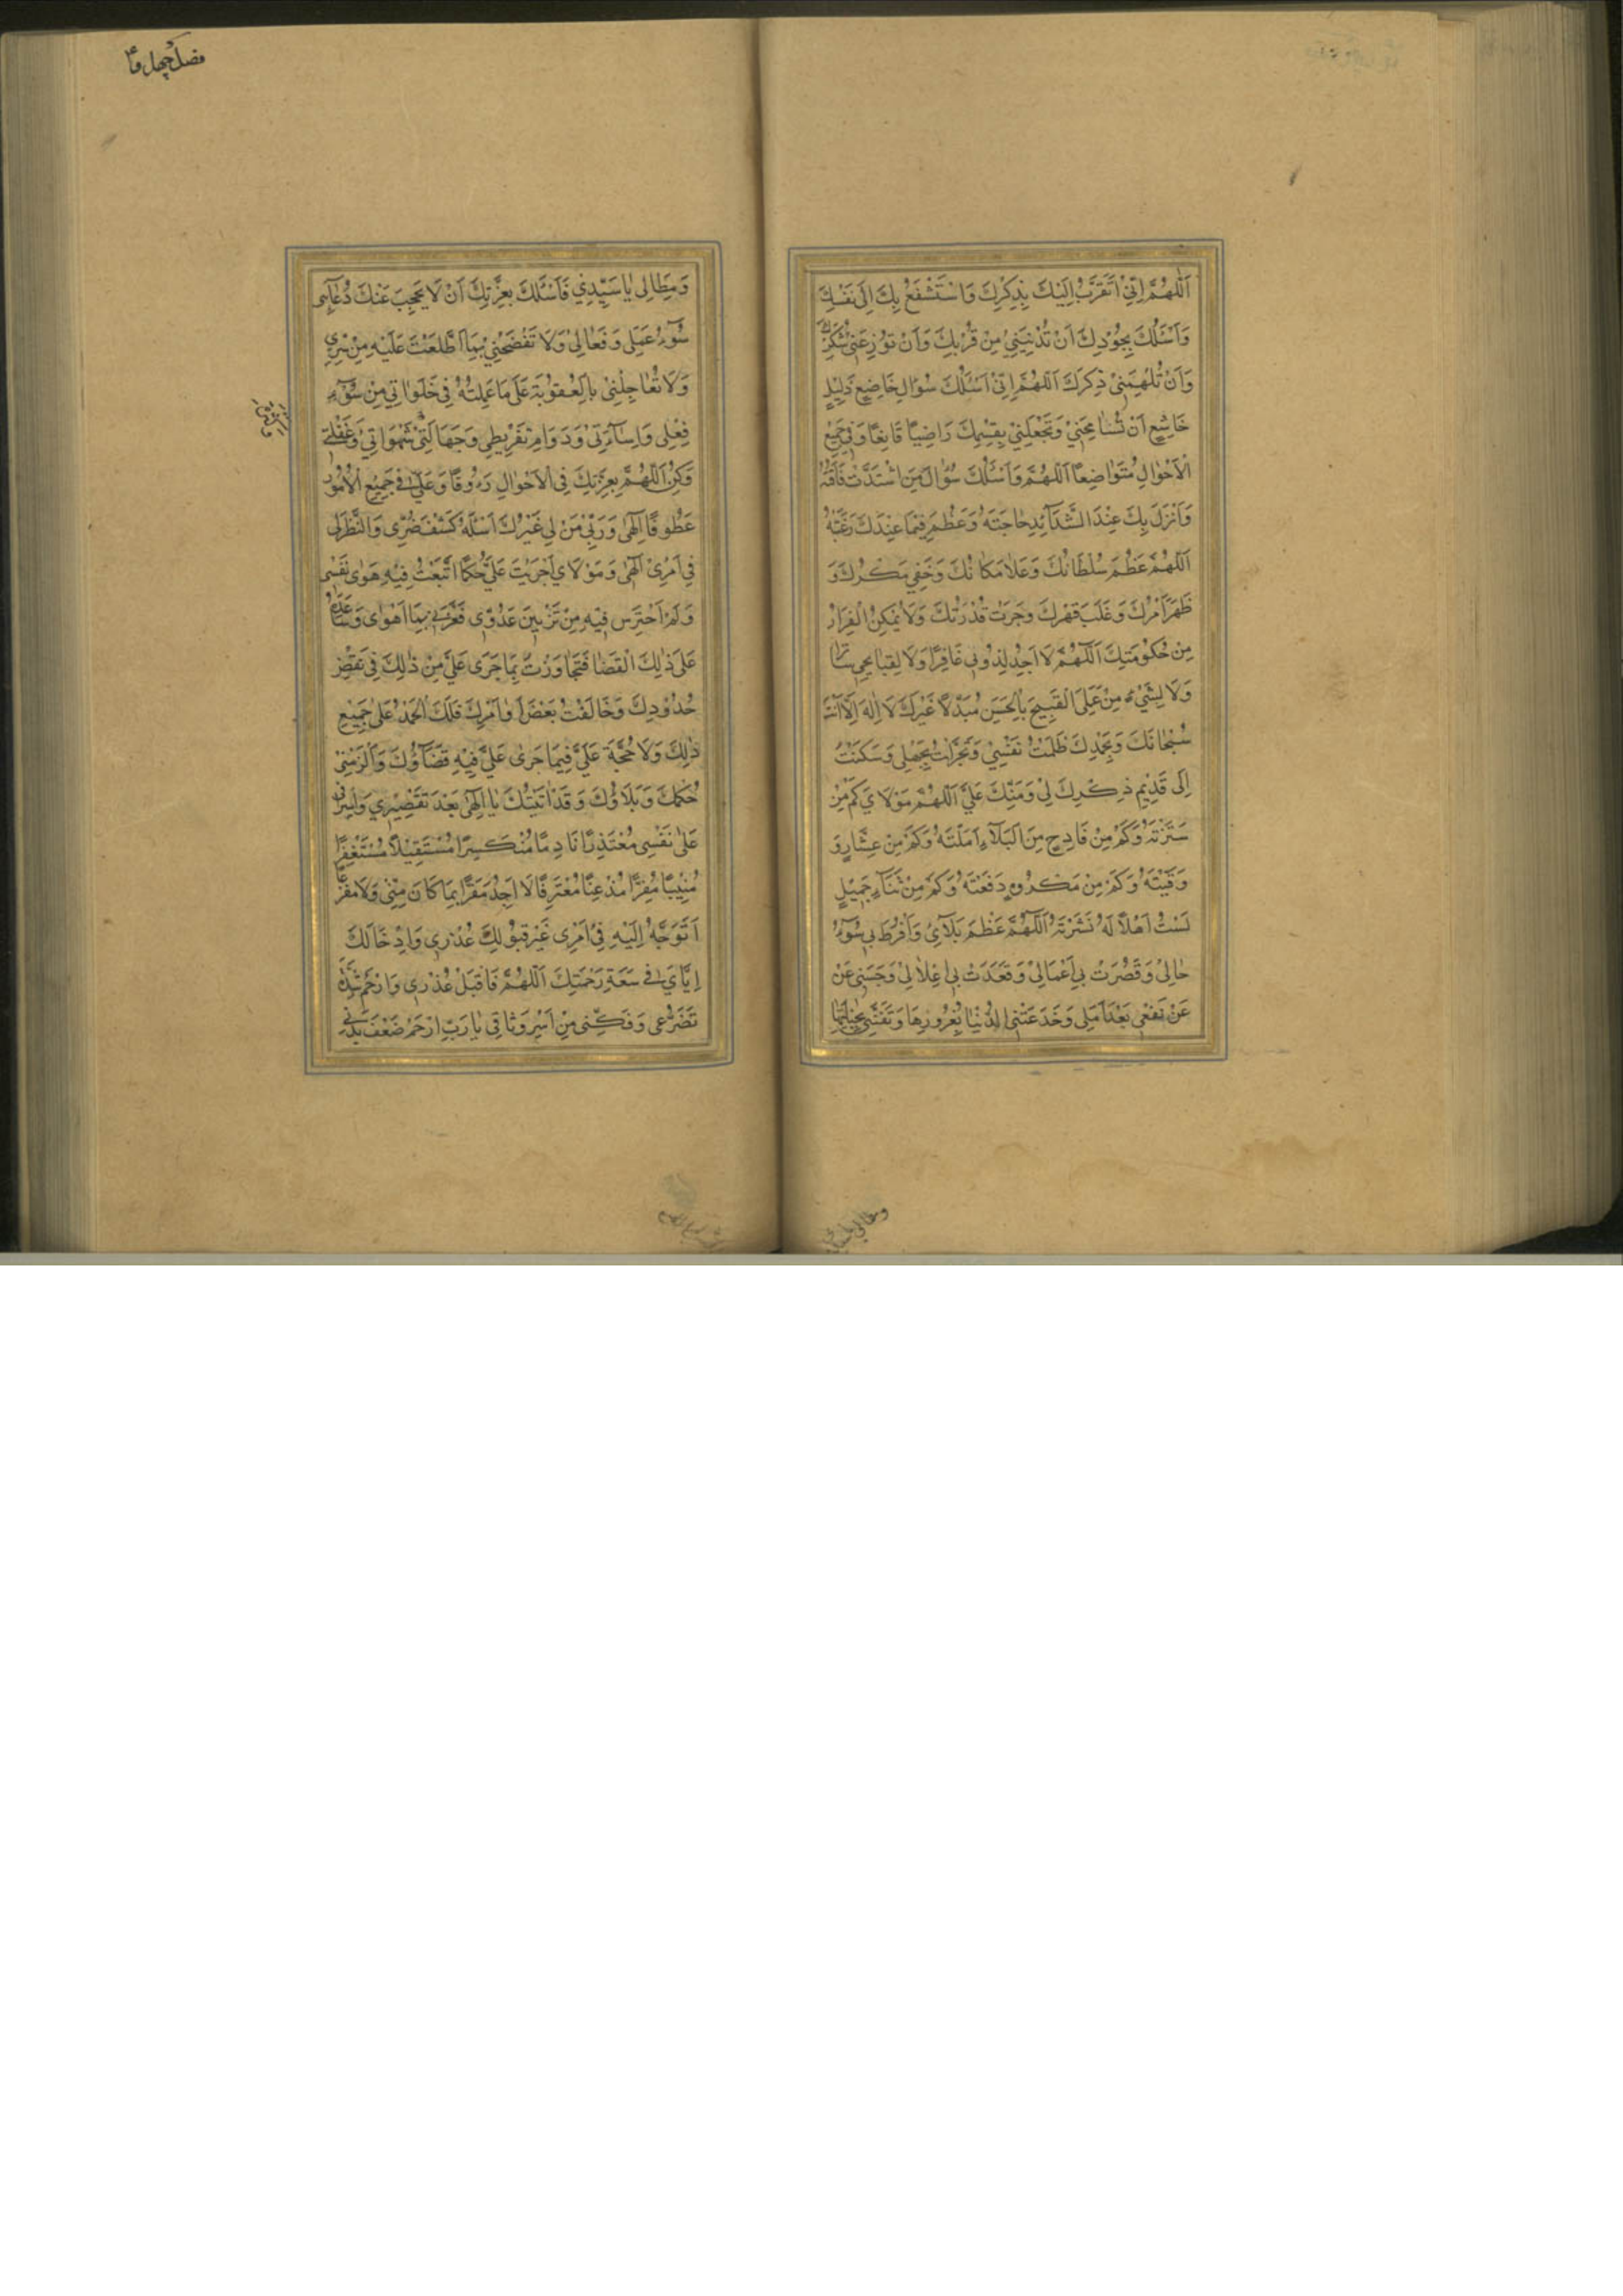 اَللّٰهُمَّ اِنّيْ اَتَقَرَّبُ اِلَيْكَ بِذِكْرِكَ وَاَسْتَشْفِعُ بِكَ اِلٰى نَفْسِكَ
وَاَسْئَلُكَ بِجُوْدِكَ اَنْ تُدْنِيَنِيْ مِنْ قُرْبِكَ وَاَنْ تُوْزِعَنِيْ شُكْرَكَ
وَاَنْ تُلْهِمَنِيْ ذِكْرَكَ اَللّٰهُمَّ اِنّيْ اَسْئَلُكَ سُؤالَ خَاضِعٍ ذَلِيْلٍ
خَاشِعٍ اَنْ تُسٰامِحَنِيْ وَتَجْعَلَنِيْ بِقِسْمِكَ رَاضِيًا قَانِعًا وَفِيْ جَمِيْعِ
الْاَحْوٰالِ مُتَوٰاضِعًا اَللّٰهُمَّ وَاَسْئَلُكَ سُؤٰالَ مَنِ اشْتَدَّتْ فَاقَتُهُ
وَاَنْزَلَ بِكَ عِنْدَ الشَّدَآئِدِ حٰاجَتَهُ وَعَظُمَ فِيْمَا عِنْدَكَ رَغْبَتُهُ
اَللّٰهُمَّ عَظُمَ سُلْطَانُكَ وَعَلَا مَكَانُكَ وَخَفِيَ مَكْرُكَ وَ
ظَهَرَ اَمْرُكَ وَغَلَبَ قَهْرُكَ وَجَرَتْ قُدْرَتُكَ وَلَا يُمْكِنُ الْفِرَارُ
مِنْ حُكُوْمَتِكَ اَللّٰهُمَّ لَا اَجِدُ لِذُنُوبي غَافِرًا وَلَا لِقَبٰايِحِي سَاتِرًا
وَلَا لِشَيْءٍ مِنْ عَمَلِيَ الْقَبِيْحِ بِالْحَسَنِ مُبَدِّلًا غَيْرَكَ لَا اِلٰهَ اِلَّا اَنْتَ
سُبْحٰانَكَ وَبِحَمْدِكَ ظَلَمْتُ نَفْسِيْ وَتَجَرَّاْتُ بِجَهْلِي وَسَكَنْتُ
اِلٰى قَدِيْمِ ذِكْرِكَ لِيْ وَمَنِّكَ عَلَيَّ اَللّٰهُمَّ مَوْلَايَ كَمْ مِنْ
سَتَرْتَهُ وَكَمْ مِنْ فَادِحٍ مِنَ الْبَلَآءِ اَمَلْتَهُ وَكَمْ مِنْ عِثَارٍ وَ
وَقَيْتَهُ وَكَمْ مِنْ مَكْرُوهٍ دَفَعْتَهُ وَكَمْ مِنْ ثَنَآءٍ جَمِيْلٍ
لَسْتُ اَهْلًا لَهُ نَشَرْتَهُ اَللّٰهُمَّ عَظُمَ بَلَآئِي وَاَفْرَطَ بي سُوْءُ
حٰالِيْ وَقَصُرَتْ بي اَعْمَالِيْ وَقَعَدَتْ بي اَغْلَالِيْ وَحَبَسَنِي عَنْ
عَنْ نَفْعِي بُعْدُ اَمَلِي وَخَدَعَتْنِي الدُّنْيَا بِغُرُوْرِهَا وَنَفْسِي بِخِيَانَتِهَا
وَمِطَالِي يٰا سَيِّدِيْ فَاَسْئَلُكَ بِعِزَّتِكَ اَنْ لَا يَحْجُبَ عَنْكَ دُعَآئِي
سُوْءُ عَمَلِي وَفَعٰالِيْ وَلَا تَفْضَحْنِيْ بِمَا اطَّلَعْتَ عَلَيْهِ مِنْ سِرّيْ
وَلَا تُعٰاجِلْنِيْ بِالْعُقُوْبَةِ عَلٰى مَا عَمِلْتُهُ فِيْ خَلَوٰاتِي مِنْ سُوْءِ
فِعْلِي وَاِسَآءَتِي وَدَوَامِ تَفْرِيْطِي وَجَهَالَتِيْ شَهَوَاتِيْ وَغَفْلَتِيْ
وَكُنِ اَللّٰهُمَّ بِعِزَّتِكَ فِي الْاَحْوٰالِ رَءُوْفًا وَعَلَيَّ فِيْ جَمِيْعِ الْاُمُوْرِ
عَطُوفًا اِلٰهِيْ وَرَبّيْ مَنْ لِي غَيْرُكَ اَسْئَلُهُ كَشْفَ ضُرّي وَالنَّظَرَ لِي
فِيْ اَمْرِيْ اِلٰهِيْ وَمَوْلَايَ اَجْرَيْتَ عَلَيَّ حُكْمًا اتَّبَعْتُ فِيْهِ هَوٰى نَفْسِي
وَلَمْ اَحْتَرِسْ فِيْهِ مِنْ تَزْيِيْنِ عَدُوّي فَغَرَّنِيْ بِمَا اَهْوٰى وَسَاعَدَهُ
عَلٰى ذٰلِكَ الْقَضَا فَتَجٰاوَزْتُ بِمَا جَرَى عَلَيَّ مِنْ ذٰلِكَ فِيْ نَقْضِ
حُدُوْدِكَ وَخَالَفْتُ بَعْضَ اَوٰامِرِكَ فَلَكَ الْحَمْدُ عَلٰى جَمِيْعِ
ذٰلِكَ وَلَا حُجَّةَ عَلَيَّ فِيْمَا جَرٰى عَلَيَّ فِيْهِ قَضَآؤُكَ وَاَلْزَمَنِيْ
حُكْمُكَ وَبَلَاؤُكَ وَقَدْ اَتَيْتُكَ يٰا اِلٰهِيْ بَعْدَ تَقْصِيْرِيْ وَاِسْرَافِي
عَلٰى نَفْسِي مُعْتَذِرًا نَادِمًا مُنْكَسِرًا مُسْتَقِيْلًا مُسْتَغْفِرًا
مُنِيْبًا مُقِرًّا مُذْعِنًا مُعْتَرِفًا لَا اَجِدُ مَفَرًّا بِمَا كَانَ مِنّيْ وَلَا مَفْزَعًا
اَتَوَجَّهُ اِلَيْهِ فِيْ اَمْرِي غَيْرَ قَبُوْلِكَ عُذْرِي وَاِدْخَالِكَ
اِيَّايَ فِيْ سَعَةِ رَحْمَتِكَ اَللّٰهُمَّ فَاقْبَلْ عُذْرِي وَارْحَمْ شِدَّةَ
تَضَرُّعِي وَفُكَّنِي مِنْ اَسْرِ وَثَاقِي يٰا رَبِّ ارْحَمْ ضَعْفَ بَدَنِيْ